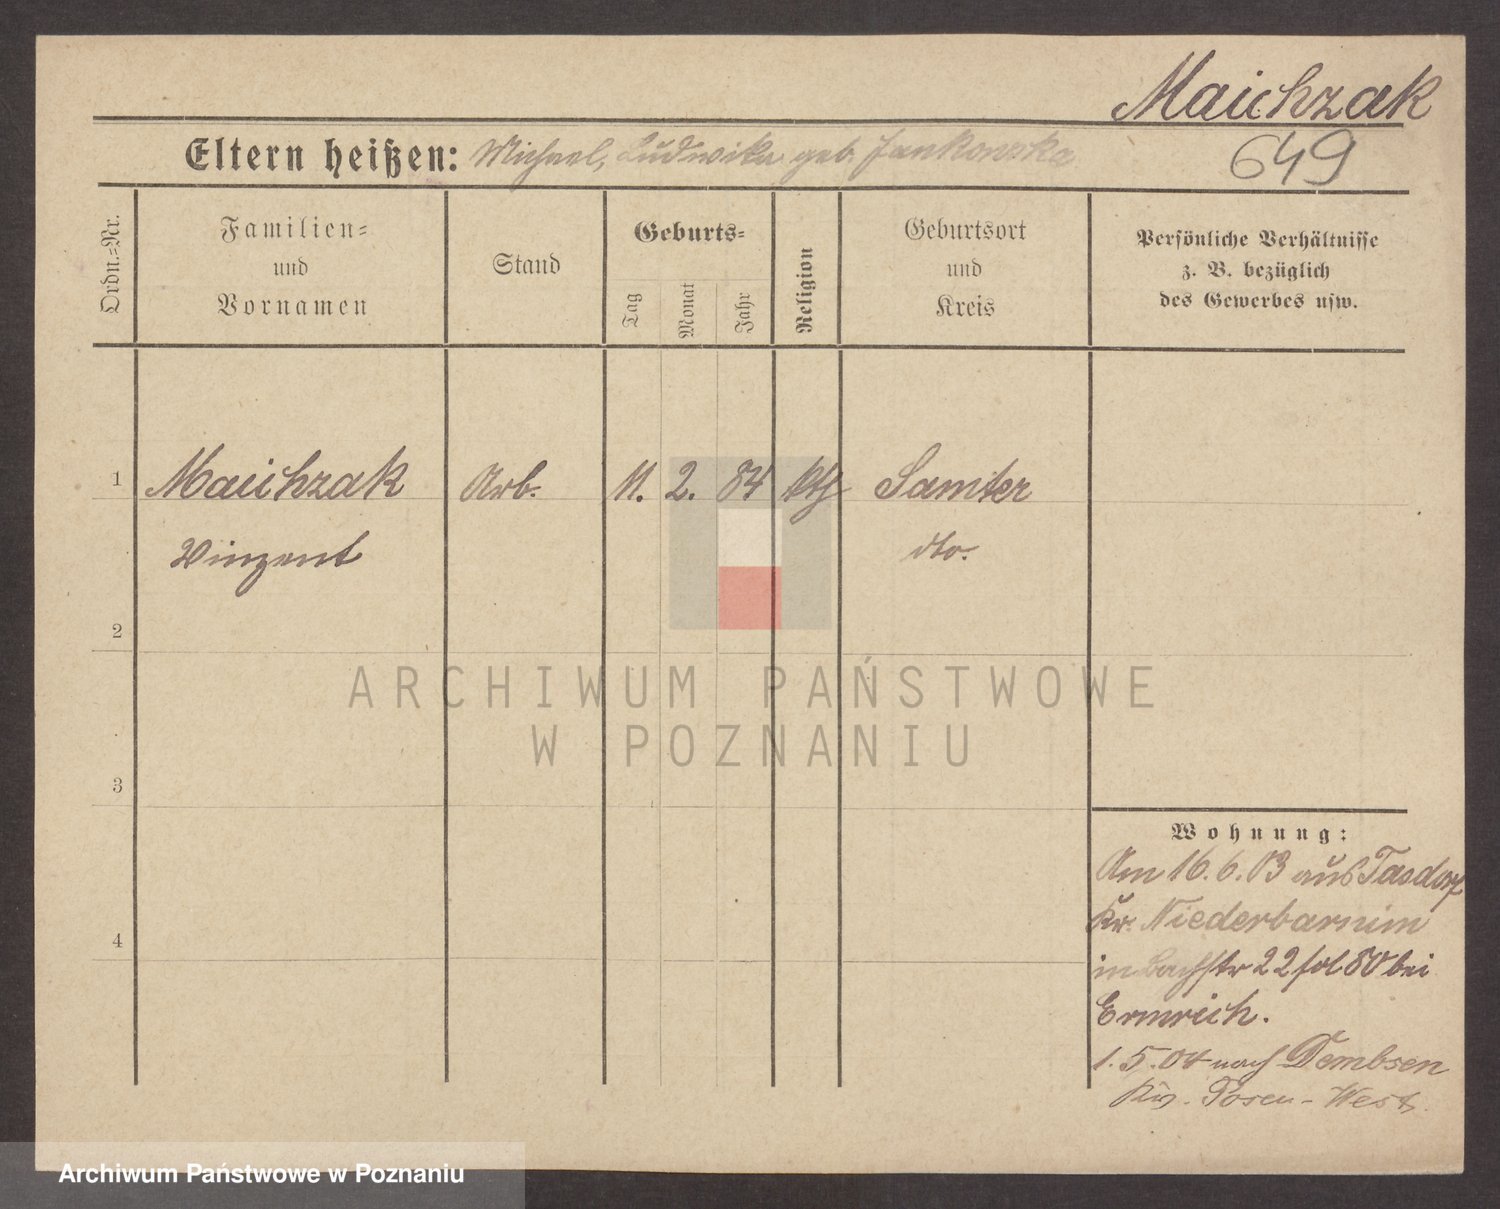 Maichzak
Eltern heißen: Michael, Ludwika geb. Jankowska
649
Ordn.=Nr.
Familien=
und
Vornamen
Stand
Geburts=
Tag
Monat
Jahr
Religion
Geburtsort
und
Kreis
Persönliche Verhältnisse
z. B. bezüglich
des Gewerbes usw.
1 Maichzak Arb. 11. 2. 84 kth Samter
Vinzent dto.
2
3
4
ARCHIWUM PAŃSTWOWE
W POZNANIU
Wohnung:
Am 16.6.03 aus Tasdorf
Kr. Niederbarnim
in Bachstr 22 fol 80 bei
Ermrich.
1.5.04 nach Dembsen
Posen-West.
Archiwum Państwowe w Poznaniu